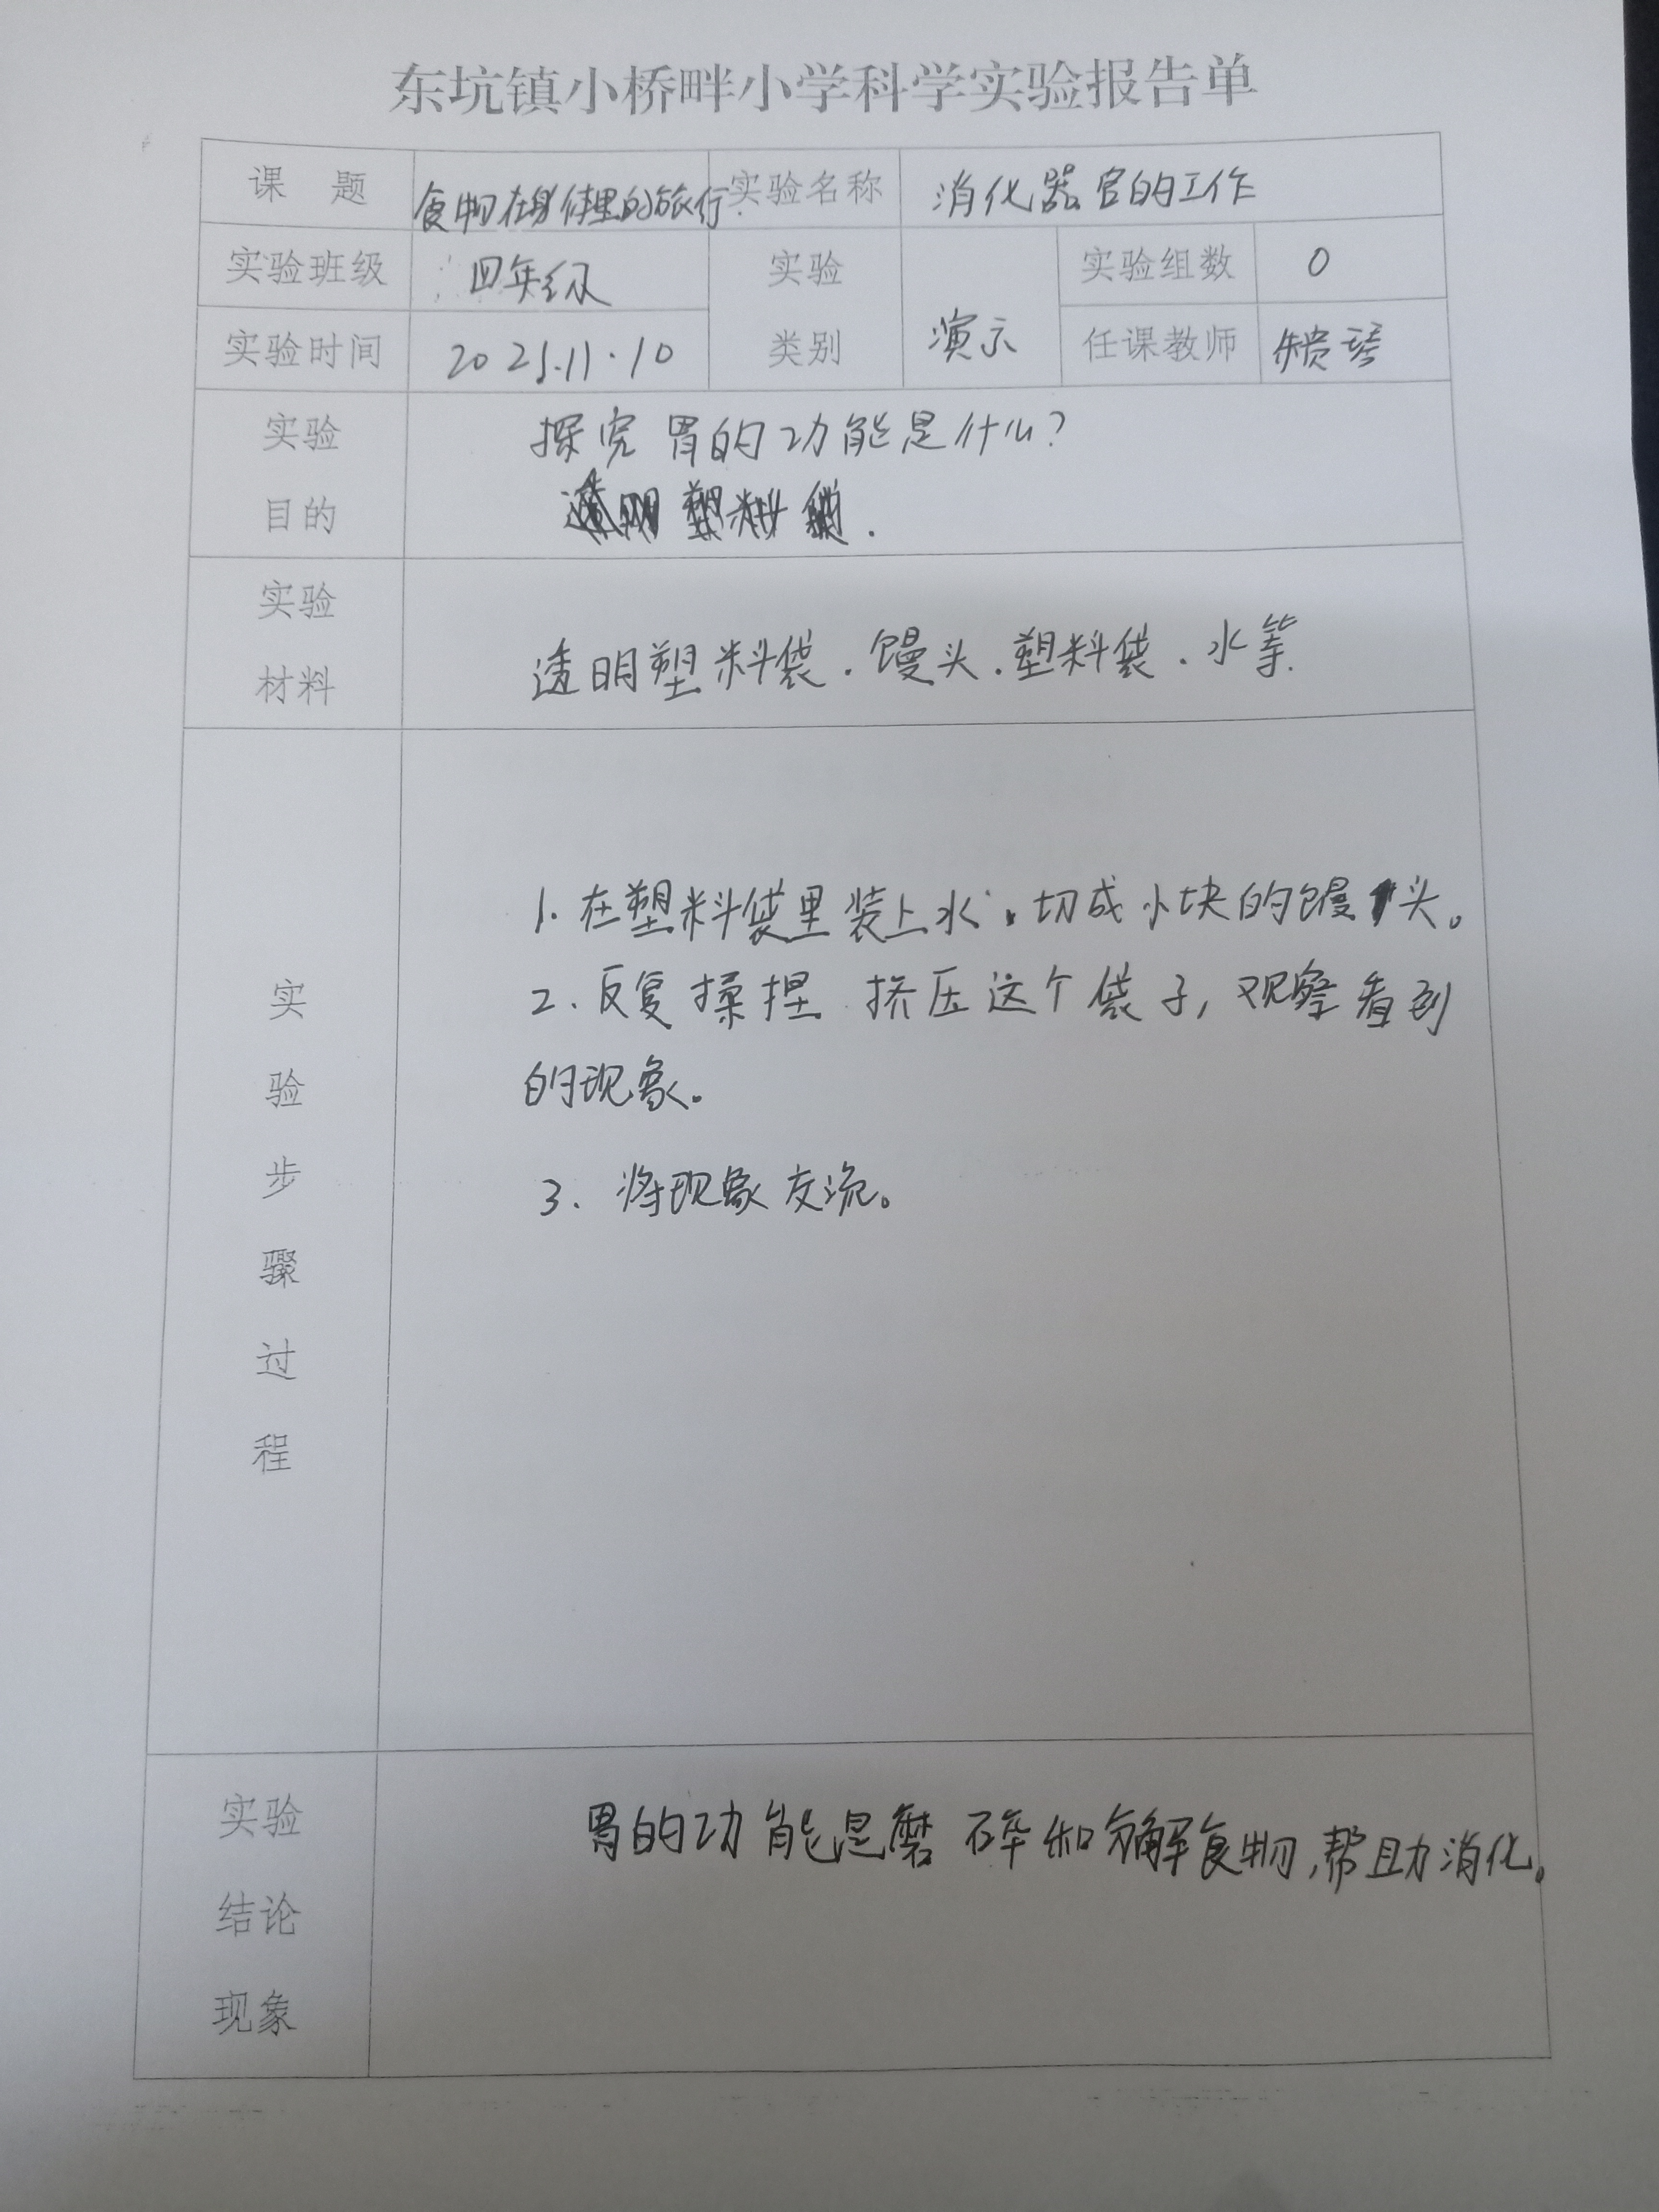 东坑镇小桥畔小学科学实验报告单
课 题 食物在身体里的旅行 实验名称 消化器官的工作
实验班级 四年级 实验 实验组数 0
实验时间 2021.11.10 类别 演示 任课教师
实验 探究胃的功能是什么?
目的
实验
材料 透明塑料袋.馒头.塑料袋.水等.
实验步骤过程
1.在塑料袋里装上水、切成小块的馒头。
2.反复揉捏 挤压这个袋子,观察看到
的现象。
3.将现象交流。
实验 胃的功能是磨碎和分解食物,帮助消化。
结论
现象